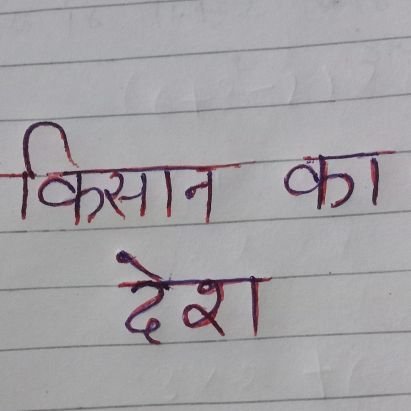 किसान का
देश